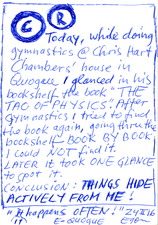 C R
Today, while doing
gymnastics @ Chris Hart
Chambers' house in
Quogue I glanced in his
bookshelf the book "THE
TAO OF PHYSICS". After
Gymnastics I tried to find
the book again, going thru the
bookshelf BOOK BY BOOK
I could NOT find it.
LATER it TOOK ONE GLANCE
to spot it.
CONCLUSION: THINGS HIDE
ACTIVELY FROM ME!
"It happens OFTEN!"